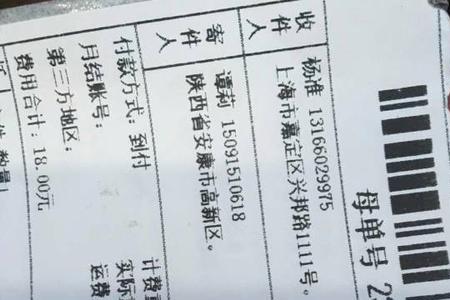 母单号
收件人
杨淮 13166029975
上海市嘉定区兴邦路1111号。
寄件人
谭莉 15091510618
陕西省安康市高新区。
付款方式：到付
月结账号：
第三方地区：
费用合计：18.00元
计费
实际
运费